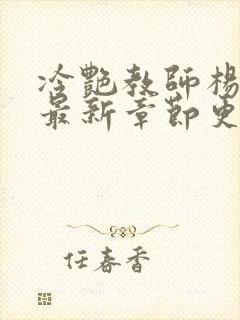 冷艷教師楊
最新章節更
任春香